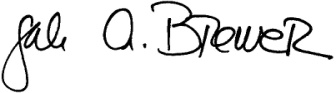 Gale A. Brewer